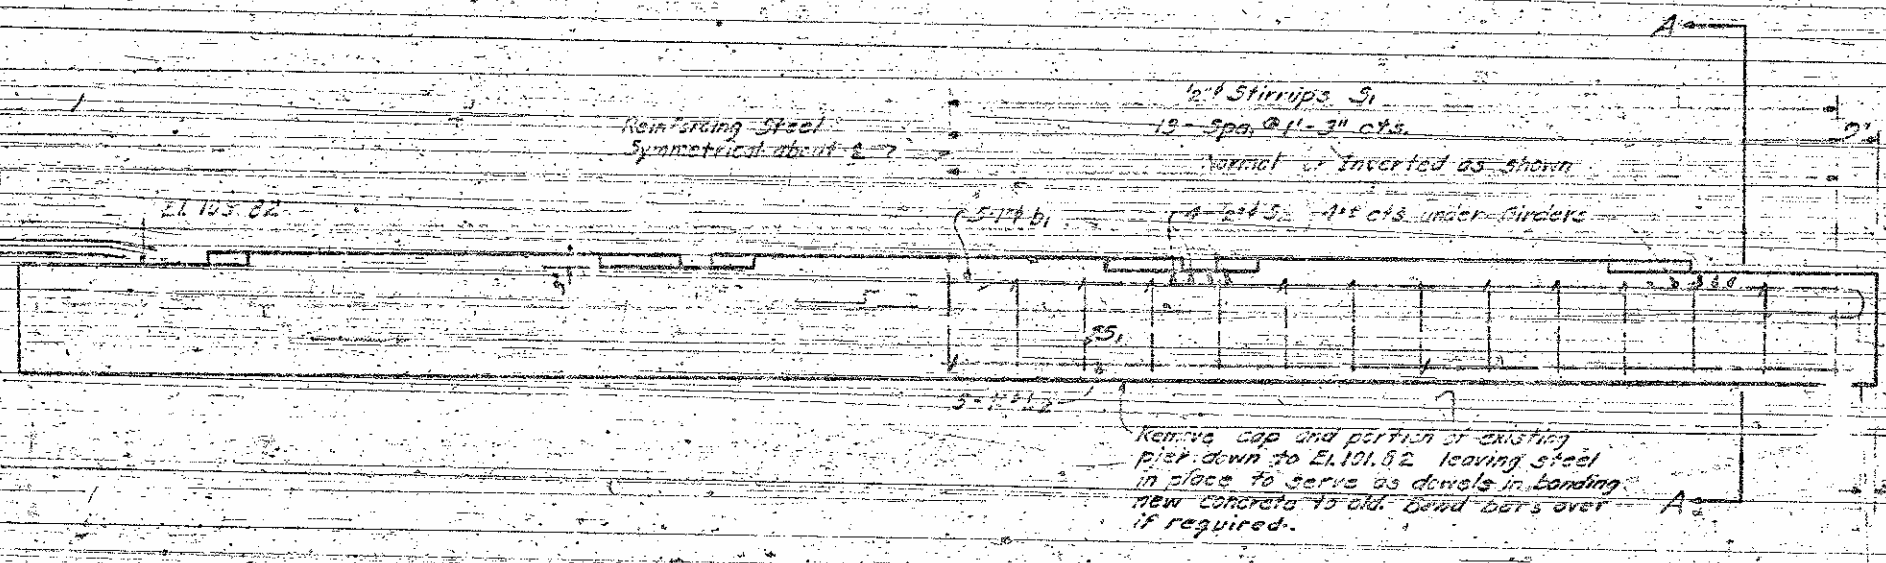 A
1/2"φ Stirrups S1
13 - Spa. @ 1'-3" cts.
Normal or Inverted as shown
Reinforcing Steel
Symmetrical about ℄
El. 105.82
5-1"φ b1
4-1/2"φ S2 4"± cts. under Girders
9"
3"
S1
5-1"φ b2
Remove cap and portion of existing
pier down to El. 101.82 leaving steel
in place to serve as dowels in bonding
new concrete to old. Bend bars over
if required.
A